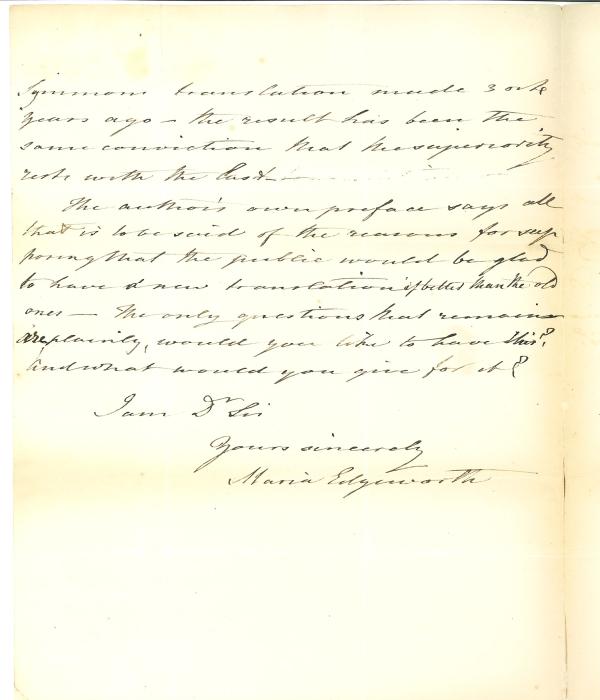 Symmons translation made 3 or 4
years ago — the result has been the
same conviction that the superiority
rests with the last —
The author's own preface says all
that is to be said of the reasons for sup
posing that the public would be glad
to have a new translation if better than the old
ones — The only questions that remain
are plainly, would you like to have this?
And what would you give for it?
I am Dr Sir
Yours sincerely
Maria Edgeworth